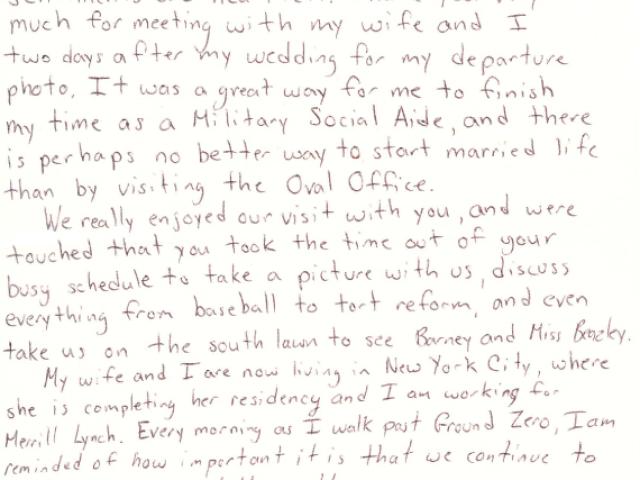 much for meeting with my wife and I
two days after my wedding for my departure
photo. It was a great way for me to finish
my time as a Military Social Aide, and there
is perhaps no better way to start married life
than by visiting the Oval Office.
We really enjoyed our visit with you, and were
touched that you took the time out of your
busy schedule to take a picture with us, discuss
everything from baseball to tort reform, and even
take us on the south lawn to see Barney and Miss Beazley.
My wife and I are now living in New York City, where
she is completing her residency and I am working for
Merrill Lynch. Every morning as I walk past Ground Zero, I am
reminded of how important it is that we continue to